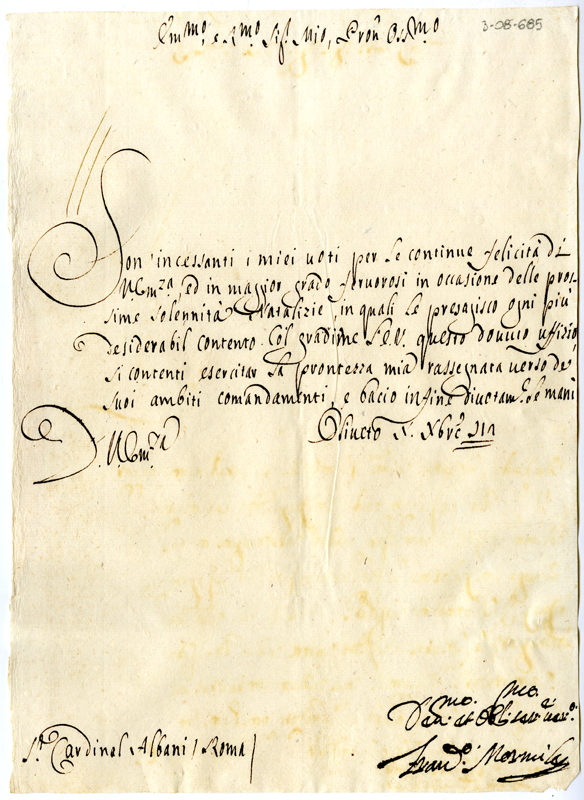 3-08-685
Em.mo, e R.mo Sig.r Mio, Pron Oss.mo
Son' incessanti i miei voti per le continue felicità di
V. Em.za, ed in maggior grado fervorosi in occasione delle pros-
sime solennità Natalizie, in quali Le presagisco ogni più
desiderabil contento. Col gradirne l'E.V. questo dovuto uffizio
si contenti esercitar la prontezza mia rassegnata verso de'
suoi ambiti comandamenti, e bacio in fine divotam.e le mani
D. V. Em.za
Oliveto Xbre
Dev.mo et Obl.mo
Mormile
S.r Cardinal Albani / Roma /